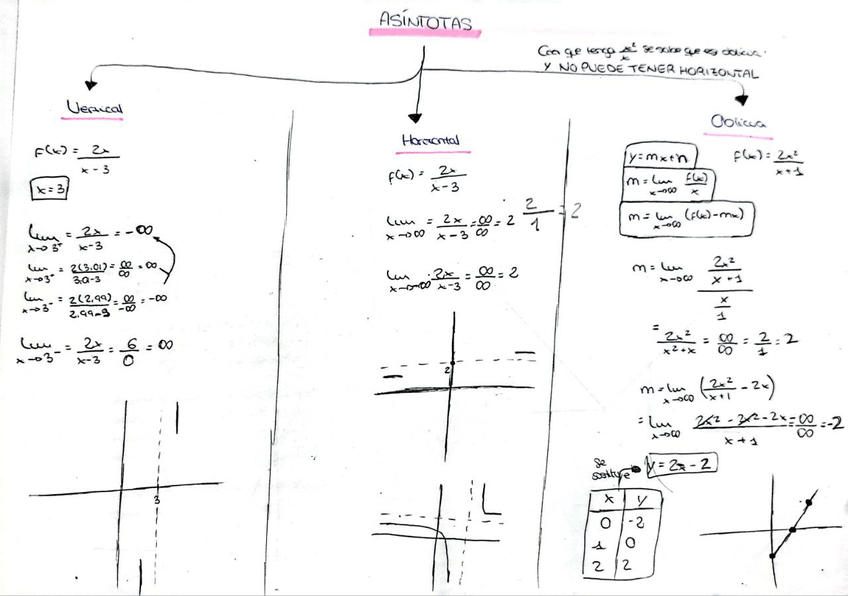 ASÍNTOTAS
Con que tenga x²/x se sabe que es oblicua.
Y NO PUEDE TENER HORIZONTAL
Vertical
f(x) = 2x/x-3
x=3
Lim x→3⁺ = 2x/x-3 = -∞
Lim x→3⁺ = 2(3.01)/3.0-3 = ∞/∞ = ∞
Lim x→3⁻ = 2(2.99)/2.99-3 = ∞/-∞ = -∞
Lim x→3⁻ = 2x/x-3 = 6/0 = ∞
3
Horizontal
f(x) = 2x/x-3
Lim x→∞ = 2x/x-3 = ∞/∞ = 2 2/1 = 2
Lim x→-∞ 2x/x-3 = ∞/∞ = 2
2
Oblicua
y=mx+n
f(x) = 2x²/x+1
m= Lim x→∞ f(x)/x
m= Lim x→∞ (f(x)-mx)
m= Lim x→∞ 2x²/x+1 / x/1
= 2x²/x²+x = ∞/∞ = 2/1 = 2
m= Lim x→∞ (2x²/x+1 - 2x)
= Lim x→∞ 2x²-2x²-2x/x+1 = ∞/∞ = -2
se sustituye y=2x-2
x y
0 -2
1 0
2 2